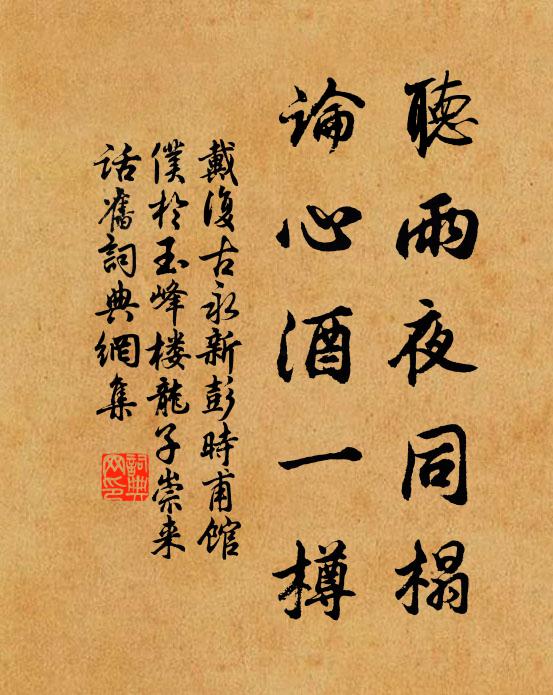 聽雨夜同榻
論心酒一樽
戴復古永新彭時甫館
僕於玉峰樓龍子崇来
話舊詞典網集
詞典
网印